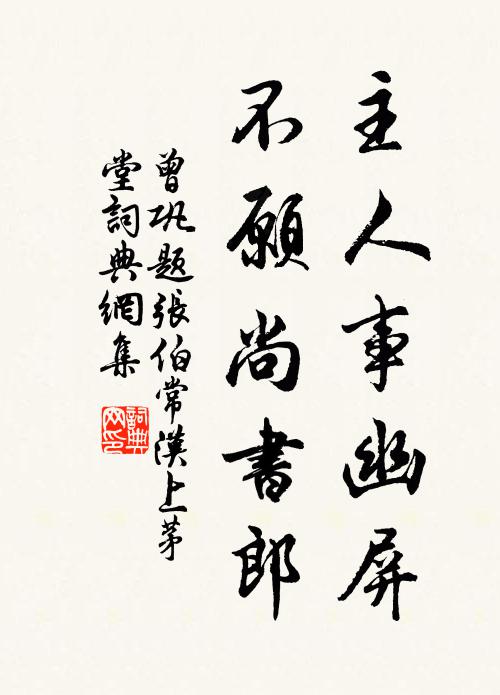 主人事幽屏
不願尚書郎
曾巩题張伯常漢上茅
堂詞典網集
詞典
网印